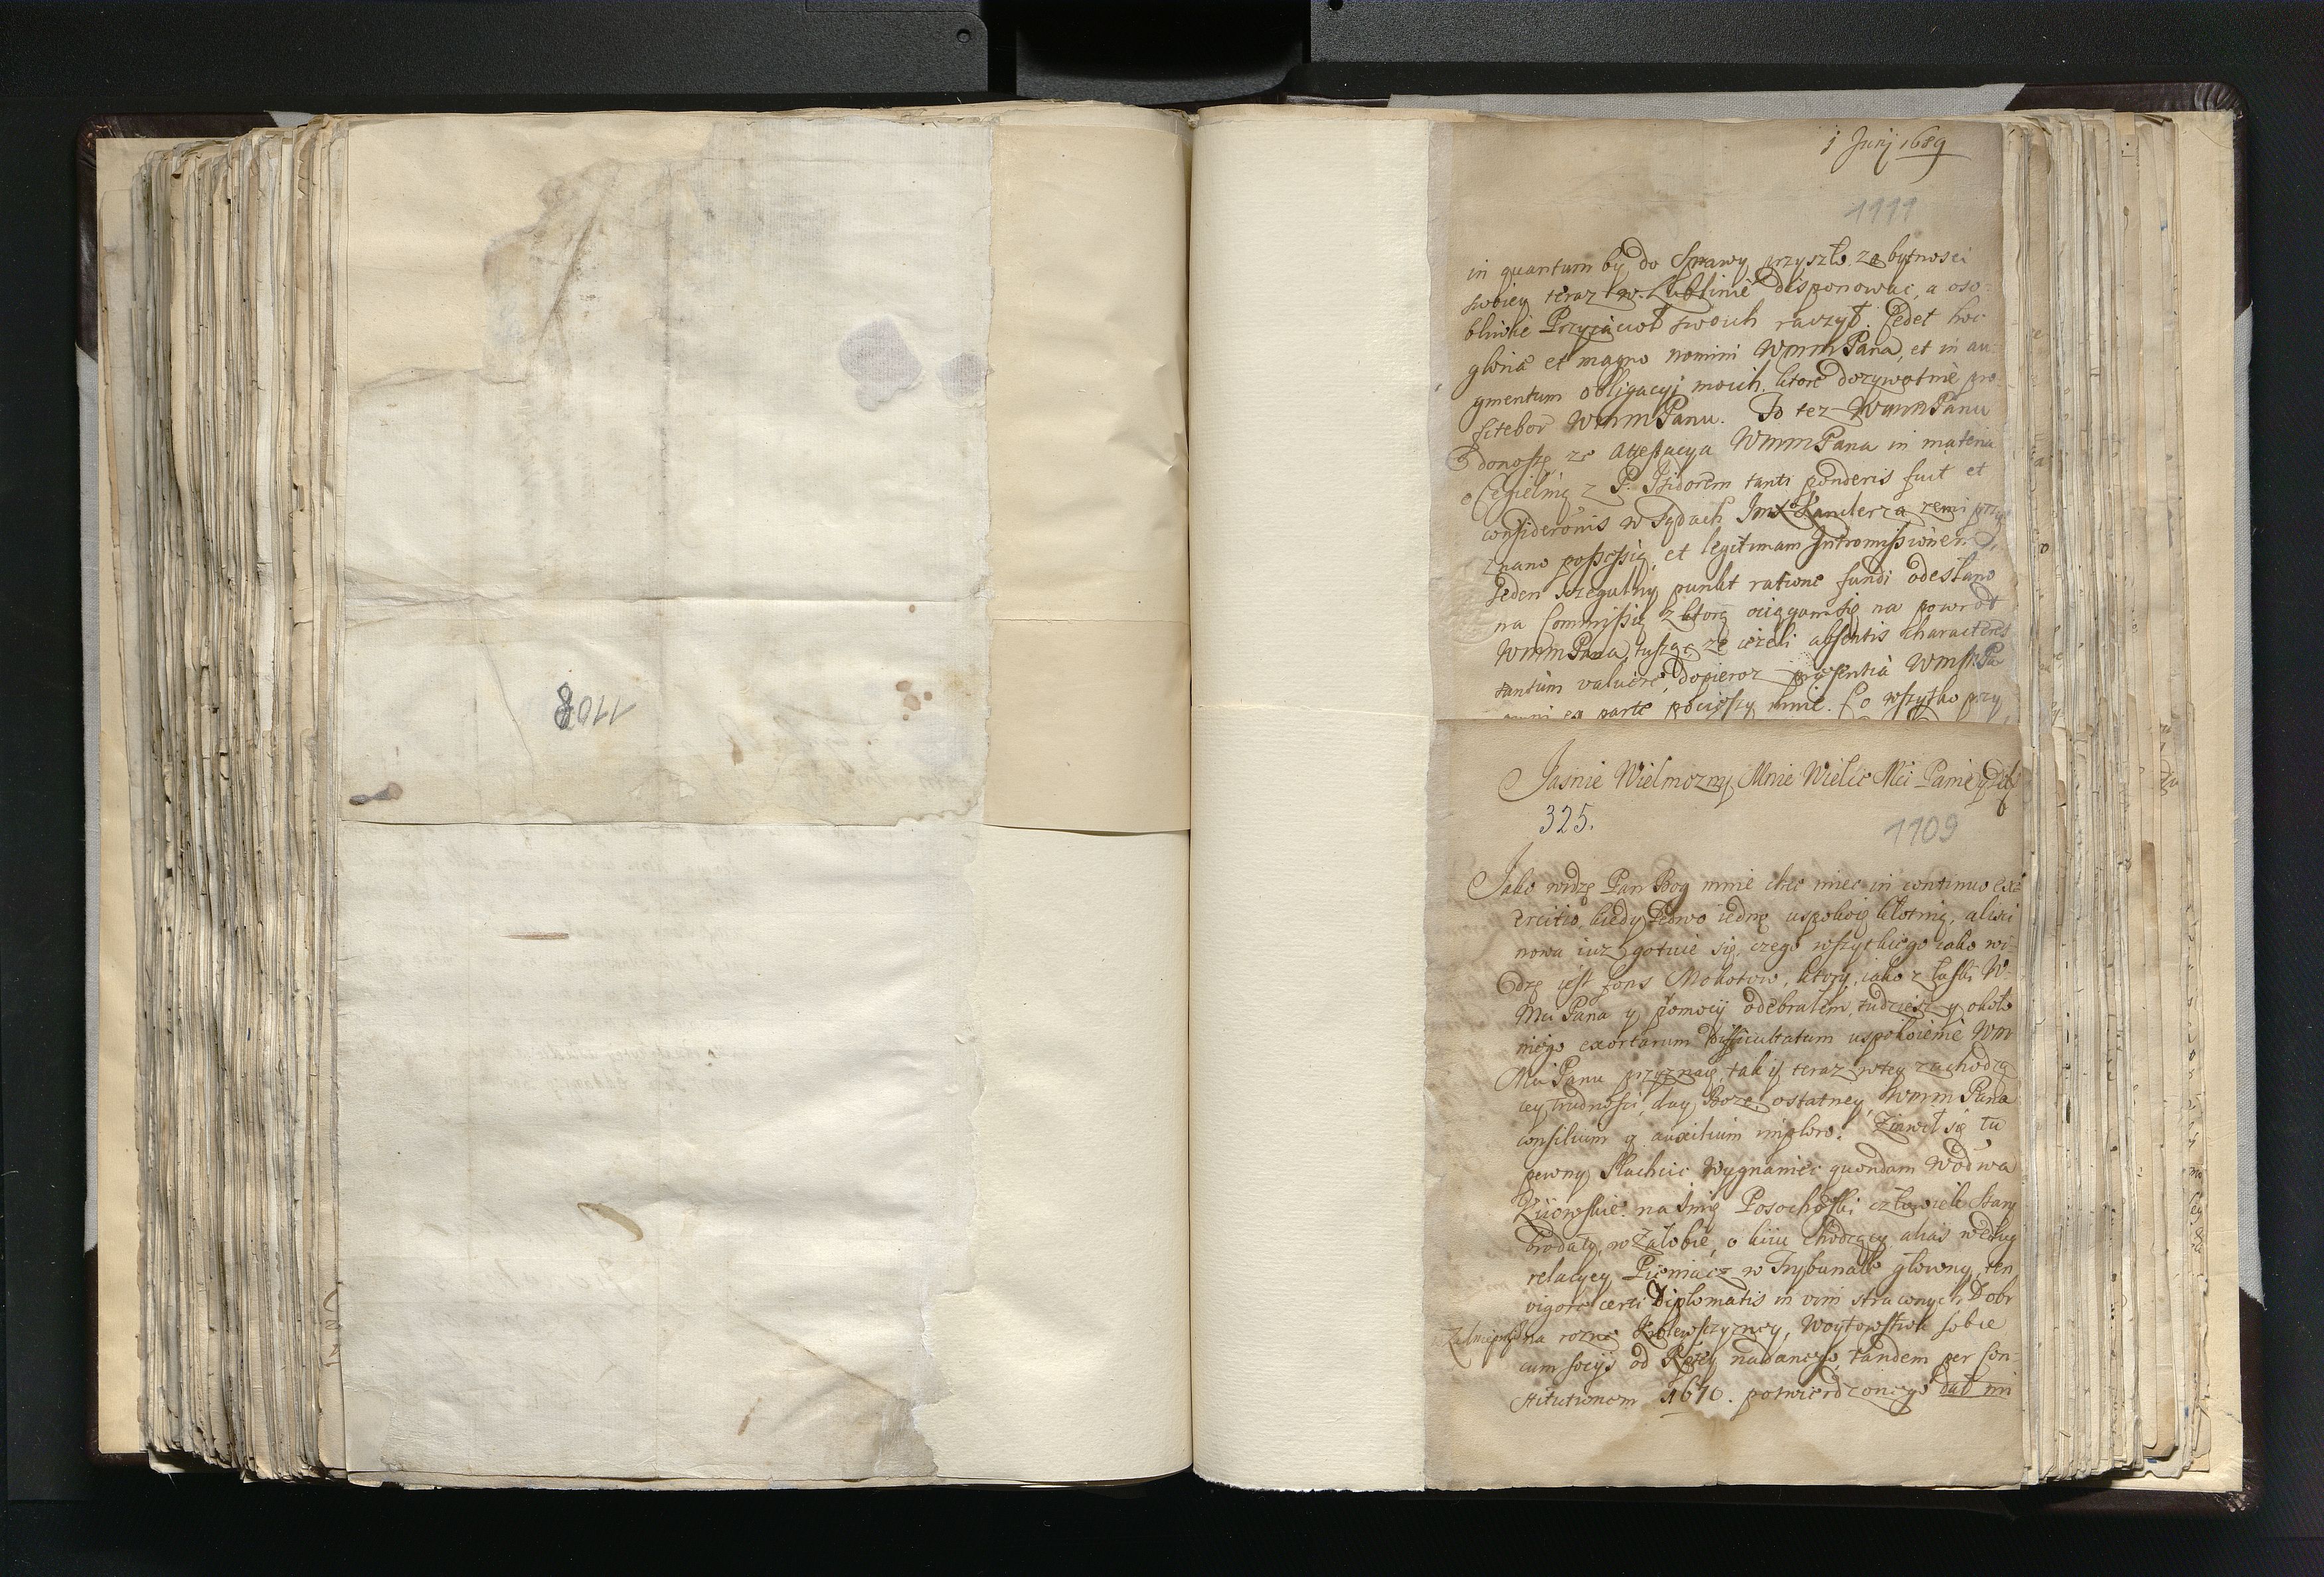 1108
1 Junij 1689
1111
in quantum by do Sprawy przyszło, za bytnosci
swoiey teraz w Lublinie disponowac, a oso-
bliwie Przyiacioł swoich raczył. Cedet hoc
gloriæ et magno nomini WmmPana, et in au-
gmentum obligacyi moich, ktore dozywotnie pro-
fitebor WmmPanu. To tez WmmPanu
donoszę, ze Attestacya WmmPana in materia
o Cegielnię z P. Isidorem tanti ponderis fuit et
consideronis w Sądach Jmsc Kanclerza, ze mi przy
znano possessią, et legitimam Intromissionem,
Jeden szegulny punkt ratione fundi odesłano
na Commissią, z ktorą ociągam się na powrot
WmmPana, tusząc, ze iezeli absentis characteres
tantum valuere, dopieroz præsentia WmmPa
omni ex parte pocieszy mnie. Co wszytko przy
Jasnie Wielmozny Mnie Wielce Mci Panie y Dob
325.
1109
Jako widzę Pan Bog mnie chce miec in continuo exe
ercitio, kiedy ledwo iednę uspokoię kłotnię, alisci
nowa iuz gotuie się, czego wszytkiego iako wi-
dzę iest fons Mokotow, ktory, iako z łaski W-
Mci Pana y pomocy odebrałem, tudziesz y około
niego exortarum difficultatum uspokoienie Wm
Mci Panu przyznaię, tak y teraz w tey zachodzą
cey trudnosci, day Boze, ostatney, WmmPana
consilium y auxilium imploro. Ziawił się tu
pewny Slachcic Wygnaniec quondam Wodwa
Kiiowskie. na Imię Posochoski człowiek stary
brodaty, w Załobie, o kiiu chodzący, alias według
relacyey Pieniacz w Trybunale głowny, ten
vigore certi Diplomatis in vim straconych Dobr
na rozne Krolewszyzny, Woytowstwa sobie
cum socijs od Rptey nadanego, tandem per Con-
stitutionem 1670. potwierdzonego dał mi